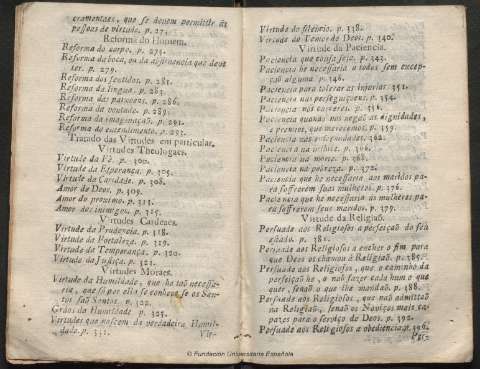 cramentaes, que se devem permittir ás
pessoas de virtude. p. 271.
Reforma do Homem.
Reforma do corpo. p. 275.
Reforma da boca, ou da abstinencia que deve
ter. p. 279.
Reforma dos sentidos. p. 281.
Reforma da lingua. p. 283.
Reforma das paixoens. p. 286.
Reforma da vontade. p. 289.
Reforma da imaginaçaõ. p. 291.
Reforma do entendimento. p. 293.
Tratado das Virtudes em particular.
Virtudes Theologaes.
Virtude da Fé. p. 300.
Virtude da Esperança. p. 305.
Virtude da Caridade. p. 308.
Amor de Deos. p. 309.
Amor do proximo. p. 313.
Amor dos inimigos. p. 315.
Virtudes Cardeaes.
Virtude da Prudencia. p. 118.
Virtude da Fortaleza. p. 119.
Virtude da Temperança. p. 120.
Virtude da Justiça. p. 121.
Virtudes Moraes.
Virtude da Humildade, que ha taõ necessa-
ria, que só por ella se conhece se os San-
tos saõ Santos. p. 322.
Gráos da Humildade p. 325.
Virtudes que nascem da verdadeira Humil-
dade. p. 331.
Vir-
Virtude do silencio. p. 338.
Virtude do Temor de Deos. p. 340.
Virtude da Paciencia.
Paciencia que cousa seja. p. 343.
Paciencia he necessaria a todos sem excep-
çaõ alguma p. 346.
Paciencia para tolerar as injurias. 351.
Paciencia nas perseguiçoens. p. 354.
Paciencia nos carceres. p. 356.
Paciencia quando nos negaõ as dignidades,
e premios, que merecemos. p. 359.
Paciencia nas enfermidades. p. 362.
Paciencia na p. 366.
Paciencia na morte. p. 368.
Paciencia na pobreza. p. 372.
Paciencia que he necessaria aos maridos pa-
ra soffrerem suas mulheres. p. 376.
Paciencia que he necessaria ás mulheres pa-
ra soffrerem seus maridos. p. 379.
Virtude da Religiaõ.
Persuade aos Religiosos a perfeiçaõ do seu
estado. p. 381.
Persuade aos Religiosos a conhecer o fim, para
que Deos os chamou á Religiaõ. p. 385.
Persuade aos Religiosos, que o caminho da
perfeiçaõ he, o naõ fazer cada hum o que
quer, senaõ o que lhe mandaõ. p. 388.
Persuade aos Religiosos, que naõ admittaõ
na Religiaõ, senaõ os Noviços mais ca-
pazes para o serviço de Deos. p. 392.
Persuade aos Religiosos a obediencia. p. 396.
© Fundación Universitaria Española